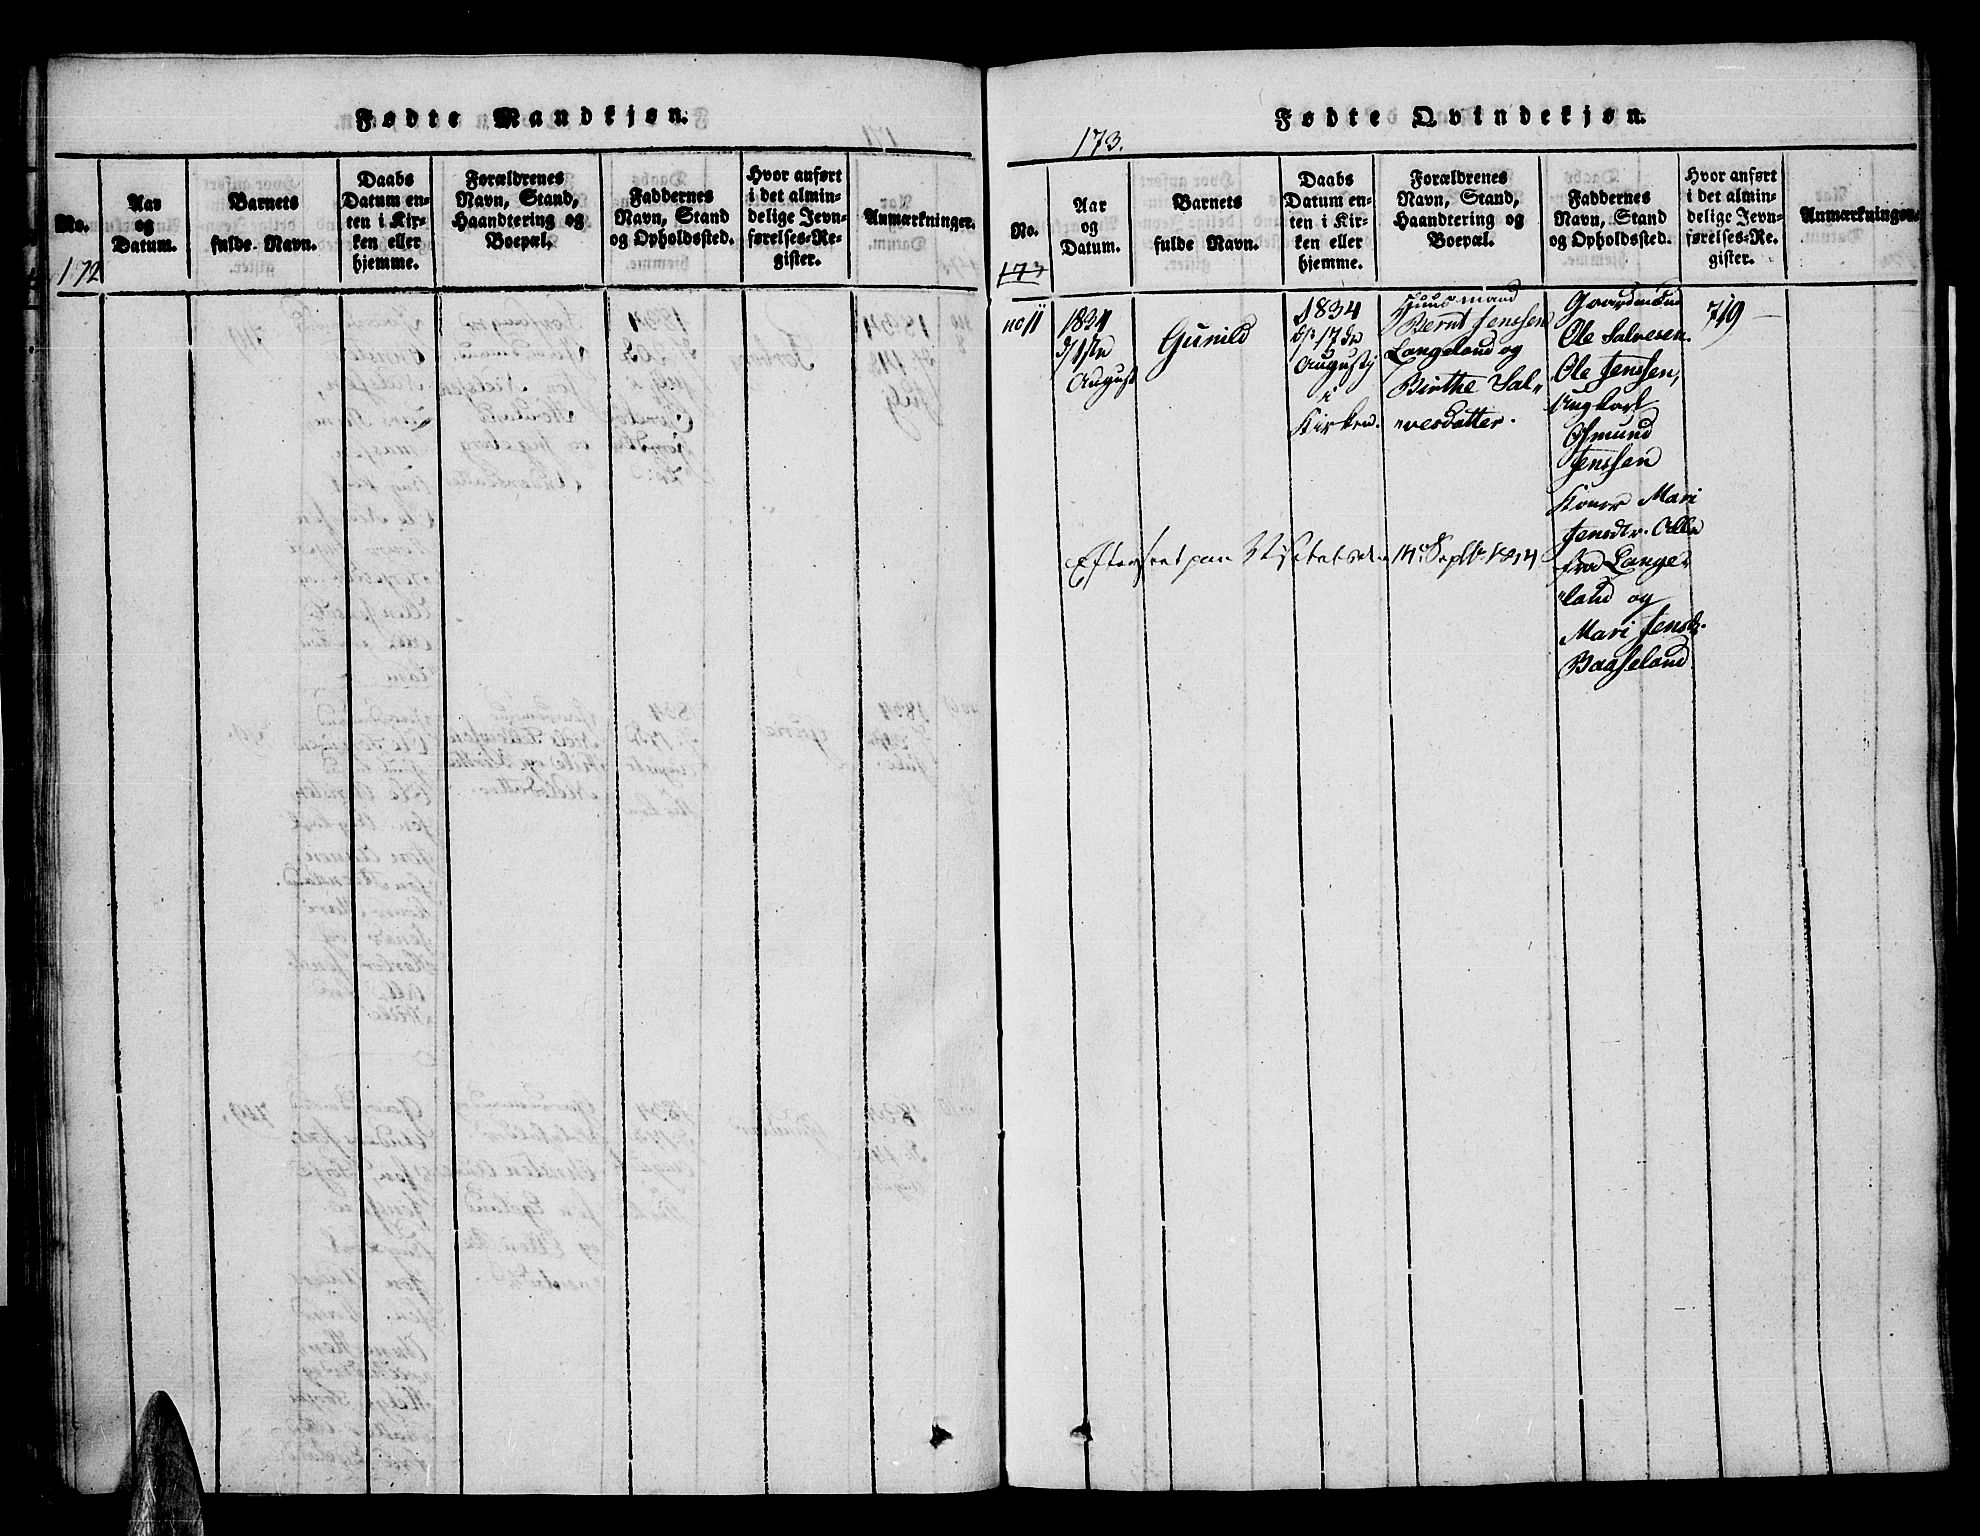 Fødte Mandkjøn.
No.
Aar
og
Datum.
Barnets
fulde Navn.
Daabs
Datum en-
ten i Kir-
ken eller
hjemme.
Forældrenes
Navn, Stand,
Haandtering og
Boepæl.
Faddernes
Navn, Stand
og Opholdssted.
Hvor anført
i det almin-
delige Jevn-
førelses-Re-
gister.
Anmærkninger.
172
Fødte Qvindekjøn.
173.
No.
Aar
og
Datum.
Barnets
fulde Navn.
Daabs
Datum en-
ten i Kir-
ken eller
hjemme.
Forældrenes
Navn, Stand,
Haandtering og
Boepæl.
Faddernes
Navn, Stand
og Opholdssted.
Hvor anført
i det almin-
delige Jevn-
førelses-Re-
gister.
Anmærkninger.
173
no 11
1834
1ste
August
Gunild
1834
17de
Augustij
i
Kirken.
Huusmand
Bernt Jenssen
Langeland og
Birthe Sal-
vesdatter.
Gaardmænd
Ole Salvesen.
Ole Jenssen,
Ungkarl
Osmund
Jenssen
Koner Mari
Jensdtr. Alle
fra Lange-
land og
Mari Jensdtr.
Baaseland
749
Efterseet paa Visitatsen 14de Septbr 1834